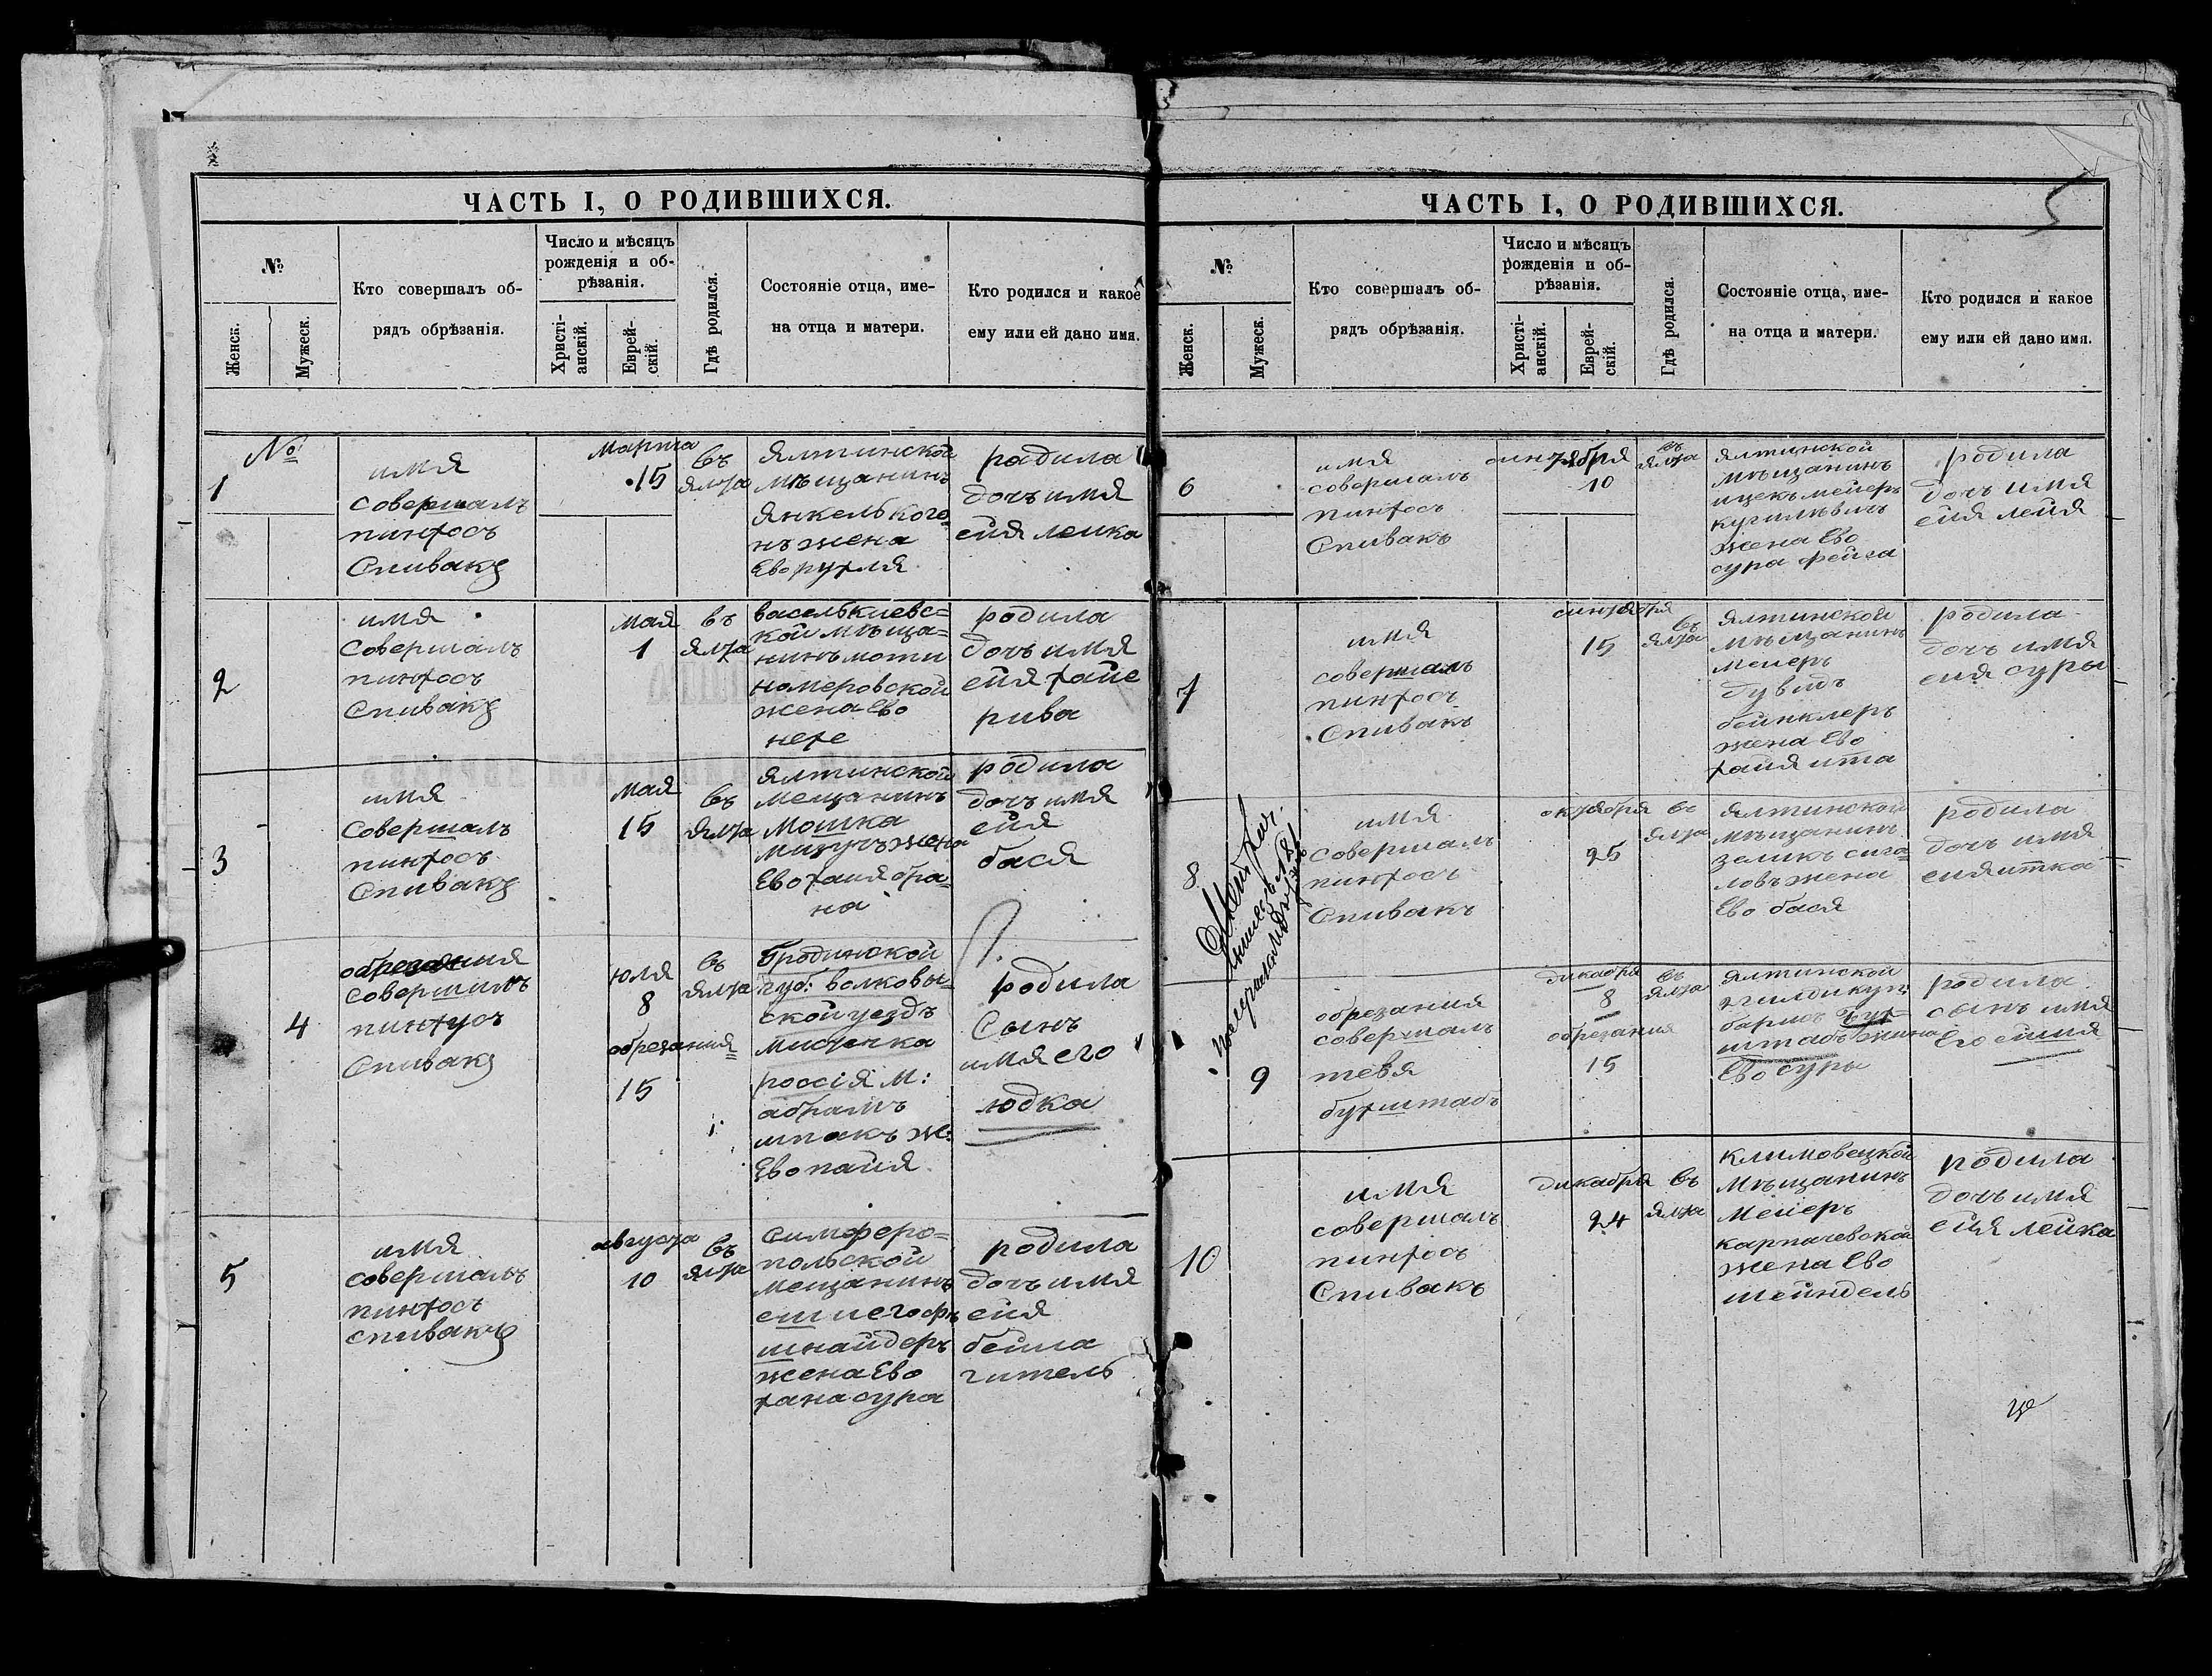 ЧАСТЬ I, О РОДИВШИХСЯ.
№
Женск.
Мужеск.
Кто совершалъ об-
рядъ обрѣзанія.
Число и мѣсяцъ
рожденія и об-
рѣзанія.
Христі-
анскій.
Еврей-
скій.
Гдѣ родился.
Состояніе отца, име-
на отца и матери.
Кто родился и какое
ему или ей дано имя.
№
1
имя
совершалъ
пинхосъ
Спивакъ
марта
15
въ
ялта
ялтинской
мѣщанинъ
янкель кого=
нъ жена
Ево рухля
радила
дочь имя
ейя леика
2
имя
совершалъ
пинхосъ
Спивакъ
мая
1
въ
ялта
василькиевс=
кой мѣща=
нинъ моти
номеровской
жена Ево
нехе
родила
дочь имя
ейя хайе
рива
3
имя
совершалъ
пинхосъ
Спивакъ
мая
15
въ
ялта
ялтинской
мещанинъ
Мошка
жена
Ево хаия бра=
на
родила
дочь имя
ейя
бася
4
обрезания
совершилъ
пинхусъ
Спивакъ
юля
8
обрезания=
15
въ
ялта
Гродинской
губ: волковы=
ской уездъ
мистечка
россія м:
абрамъ
шпакъ ж:
Ево паия
родила
Сынъ
имя его
юдка
5
имя
совершалъ
пинхосъ
спивакъ
августа
10
въ
ялта
симферо=
польской
мещанинъ
шнайдеръ
жена Ево
хана сура
родила
дочь имя
ейя
бейла
гитель
5
ЧАСТЬ I, О РОДИВШИХСЯ.
№
Женск.
Мужеск.
Кто совершалъ об-
рядъ обрѣзанія.
Число и мѣсяцъ
рожденія и об-
рѣзанія.
Христі-
анскій.
Еврей-
скій.
Гдѣ родился.
Состояніе отца, име-
на отца и матери.
Кто родился и какое
ему или ей дано имя.
6
имя
совершалъ
пинхосъ
Спивакъ
синтября
10
въ
ялта
ялтинской
мѣщанинъ
ицекъ мейеръ
жена Ево
сура фейга
родила
дочь имя
ейя лейя
7
имя
совершалъ
пинхосъ
Спивакъ
синтября
15
въ
ялта
ялтинской
мѣщанинъ
меиеръ
дувидъ
бейнклеръ
жена Ево
хаия ита
родила
дочь имя
ейя суры
8
имя
совершалъ
пинхосъ
Спивакъ
октября
25
въ
ялта
ялтинской
мѣщанинъ
зеликъ сига=
ловъ жена
Ево бася
родила
дочь имя
ейя итка
9
обрезания
совершалъ
тевя
бухштабъ
дикабря
8
обрезания
15
въ
ялта
ялтинской
2 гилди куп:
борисъ бух=
штабъ жина
Ево суры
родила
сынъ имя
Его
10
имя
совершалъ
пинхосъ
Спивакъ
дикабря
24
въ
ялта
климовецкой
мѣщанинъ
меиеръ
карпачевской
жена Ево
шейндель
родила
дочь имя
ейя лейка